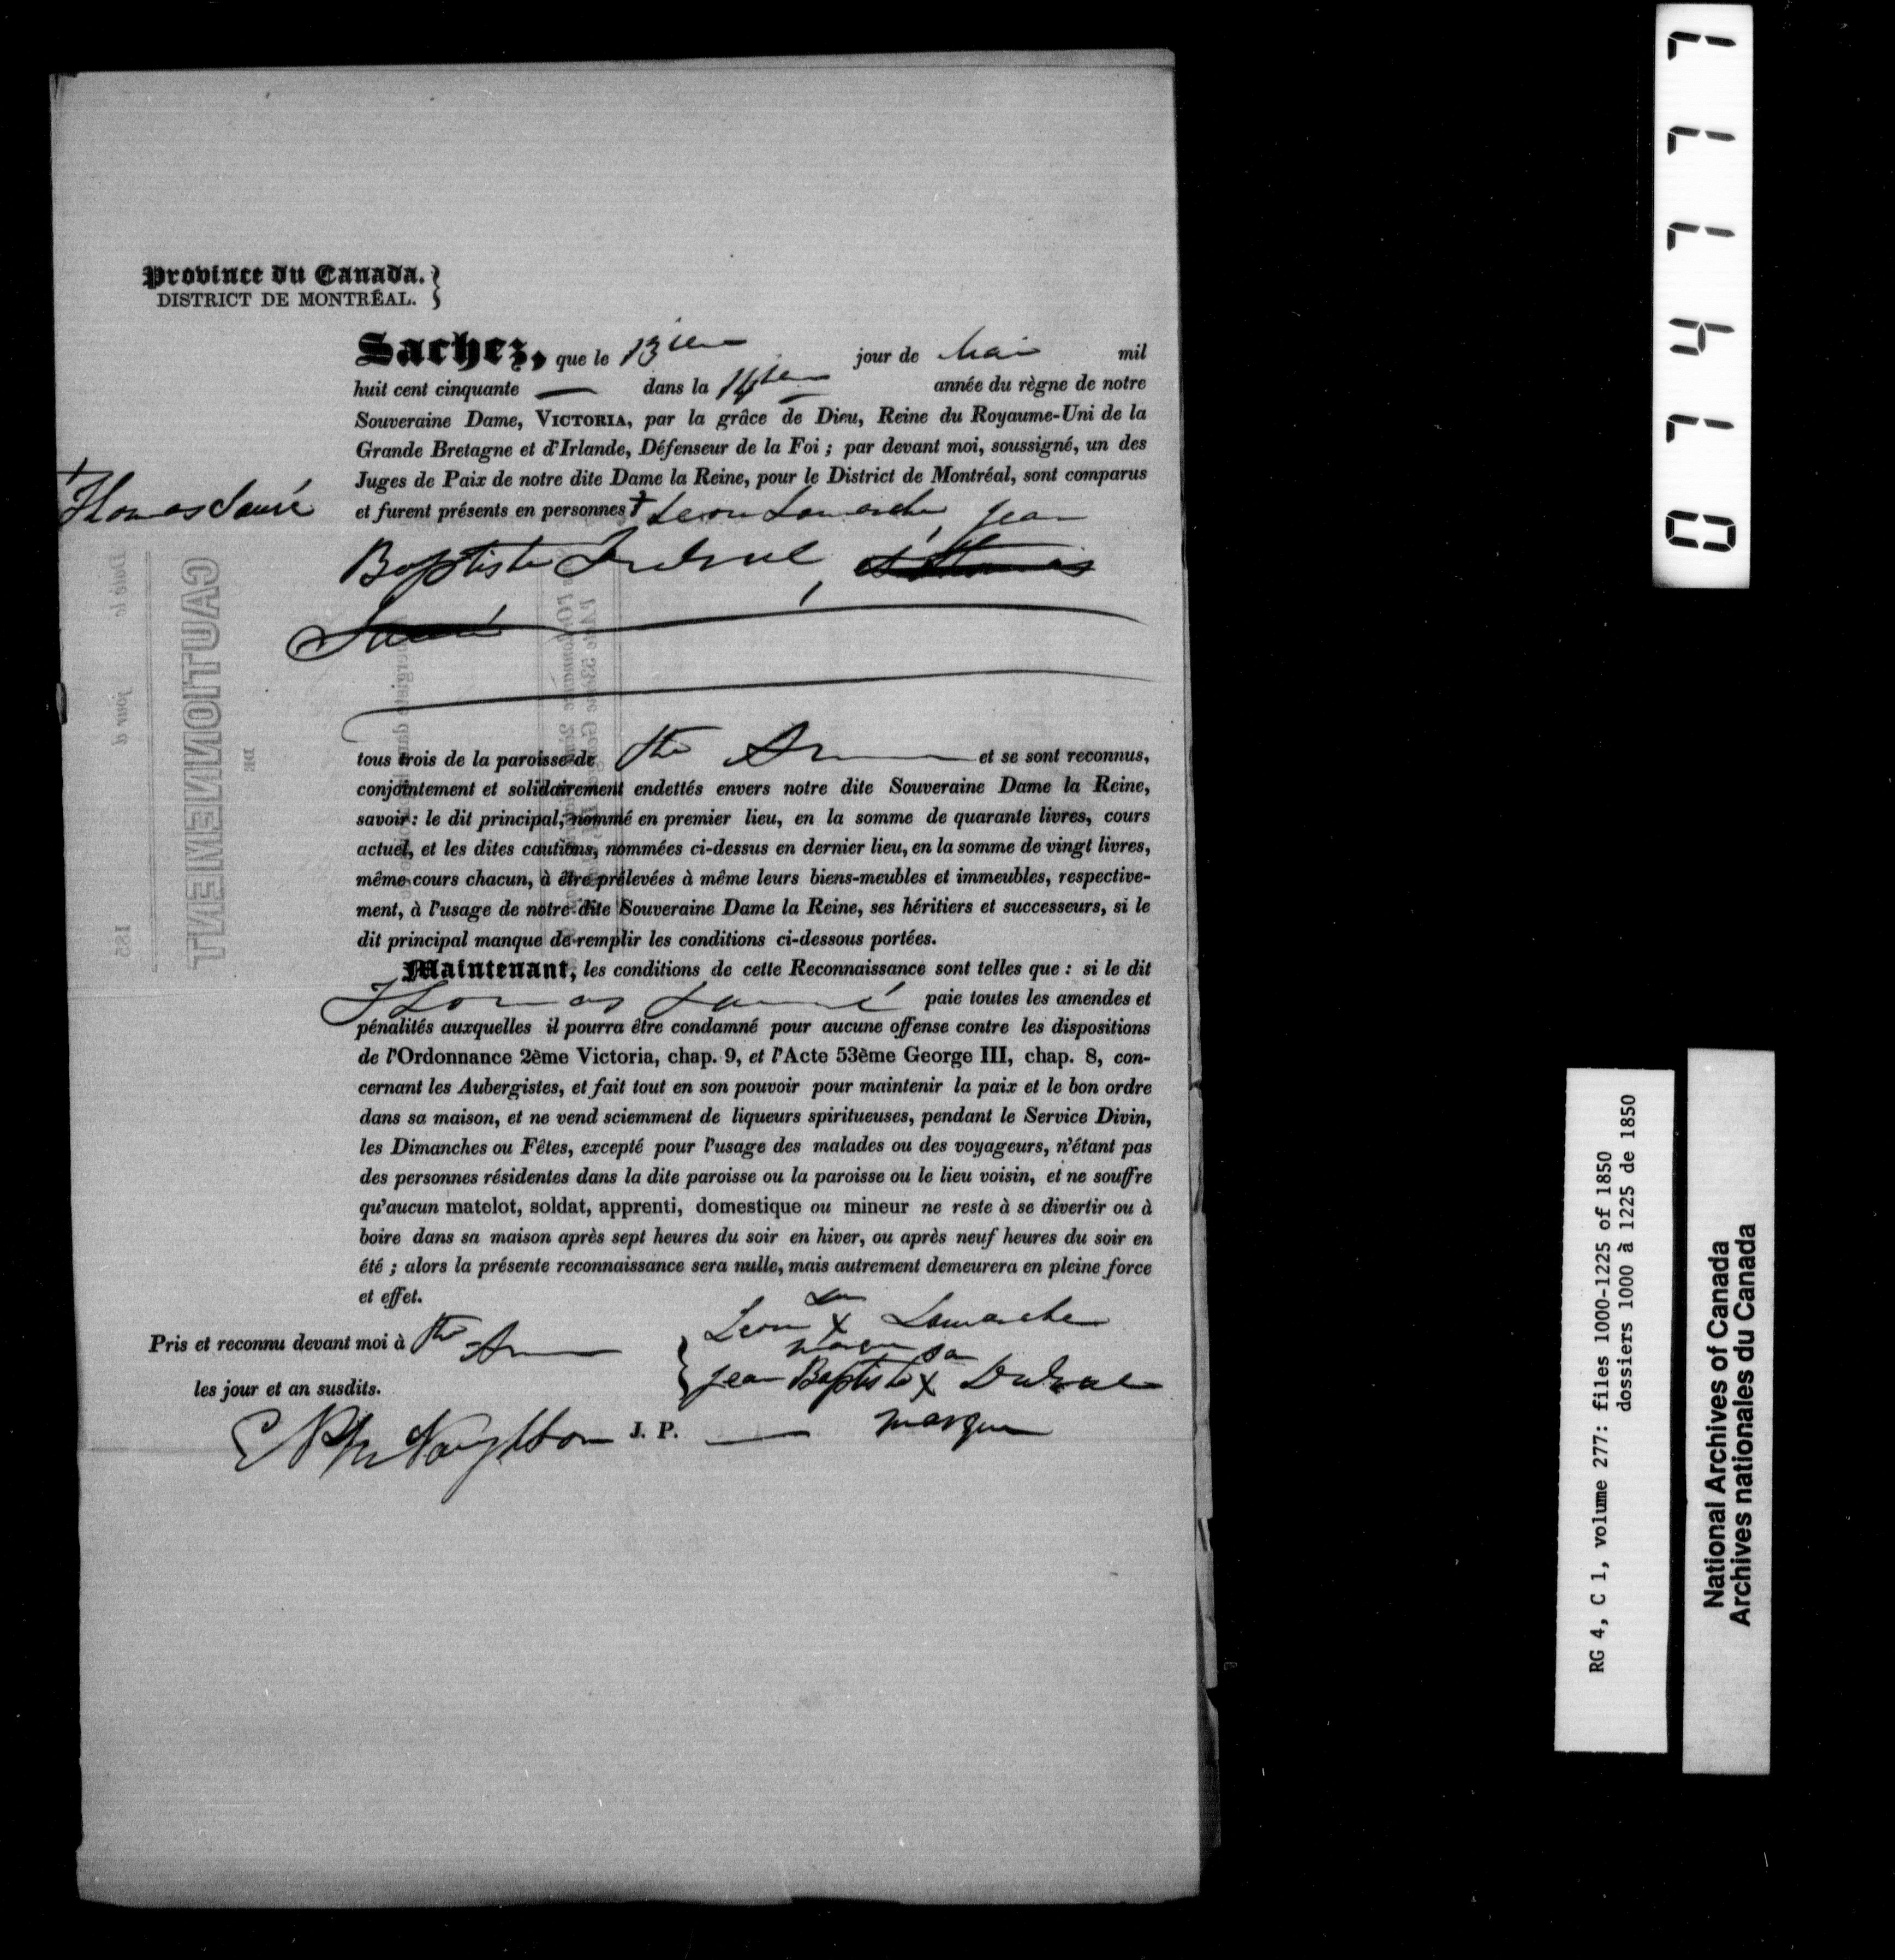 Province du Canada. }
DISTRICT DE MONTRÉAL. }
Sachez, que le 13ième jour de Mai mil
huit cent cinquante — dans la 14ième année du règne de notre
Souveraine Dame, VICTORIA, par la grâce de Dieu, Reine du Royaume-Uni de la
Grande Bretagne et d'Irlande, Défenseur de la Foi ; par devant moi, soussigné, un des
Juges de Paix de notre dite Dame la Reine, pour le District de Montréal, sont comparus
+ Thomas Sauvé
et furent présents en personnes + Leon Lamarche, Jean
Baptiste Dubrul, & Thomas
Sauvé
tous trois de la paroisse de Ste Ann et se sont reconnus,
conjointement et solidairement endettés envers notre dite Souveraine Dame la Reine,
savoir : le dit principal, nommé en premier lieu, en la somme de quarante livres, cours
actuel, et les dites cautions, nommées ci-dessus en dernier lieu, en la somme de vingt livres,
même cours chacun, à être prélevées à même leurs biens-meubles et immeubles, respective-
ment, à l'usage de notre dite Souveraine Dame la Reine, ses héritiers et successeurs, si le
dit principal manque de remplir les conditions ci-dessous portées.
Maintenant, les conditions de cette Reconnaissance sont telles que : si le dit
Thomas Sauvé paie toutes les amendes et
pénalités auxquelles il pourra être condamné pour aucune offense contre les dispositions
de l'Ordonnance 2ème Victoria, chap. 9, et l'Acte 53ème George III, chap. 8, con-
cernant les Aubergistes, et fait tout en son pouvoir pour maintenir la paix et le bon ordre
dans sa maison, et ne vend sciemment de liqueurs spiritueuses, pendant le Service Divin,
les Dimanches ou Fêtes, excepté pour l'usage des malades ou des voyageurs, n'étant pas
des personnes résidentes dans la dite paroisse ou la paroisse ou le lieu voisin, et ne souffre
qu'aucun matelot, soldat, apprenti, domestique ou mineur ne reste à se divertir ou à
boire dans sa maison après sept heures du soir en hiver, ou après neuf heures du soir en
été ; alors la présente reconnaissance sera nulle, mais autrement demeurera en pleine force
et effet.
sa
Leon X Lamarche
marque
Pris et reconnu devant moi à Ste Ann
sa
Jean Baptiste X Dubrul
les jour et an susdits.
marque
J. P.
CAUTIONNEMENT
DE
Daté le jour d 185
074777
RG 4, C 1, volume 277: files 1000-1225 of 1850
dossiers 1000 à 1225 de 1850
National Archives of Canada
Archives nationales du Canada